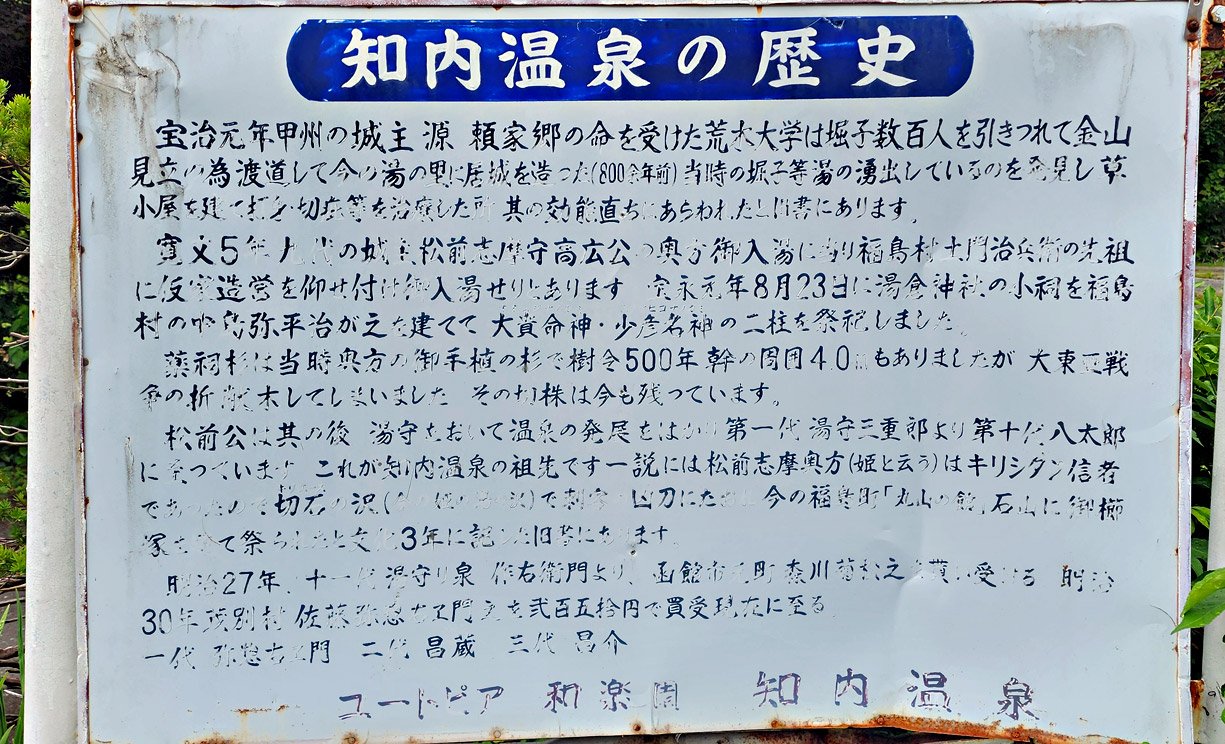 知内温泉の歴史
宝治元年甲州の城主 源 頼家郷の命を受けた荒木大学は堀子数百人を引きつれて金山
見立の為渡道して今の湯の里に居城を造った(800余年前)当時の堀子等湯の湧出しているのを発見し草
小屋を建て打身切症等を治療した所 其の効能直ちにあらわれたと旧書にあります。
寛文5年九代の城主松前志摩守高広公の奥方御入湯に当り福島村土門治兵衛の先祖
に仮宮造営を仰せ付け御入湯せりとあります 宝永元年8月23日に湯倉神社の小祠を福島
村の 弥平治が之を建てて 大貴命神・少彦名神の二柱を祭祀しました。
薬祠杉は当時奥方の御手植の杉で樹令500年 幹の周囲4.0mもありましたが 大東亜戦
争の折 木してしまいました その切株は今も残っています。
松前公は其の後 湯守をおいて温泉の発展をはかり第一代湯守三重郎より第十代八太郎
に至っています これが知内温泉の祖先です一説には松前志摩奥方(姫と云う)はキリシタン信者
であったので切石の沢( )で刺客 凶刀にたおれ今の福島町「丸山の館」石山に御櫛
塚を て祭られたと文化3年に記した旧書にあります。
明治27年 十一代湯守り泉 作右衛門より、函館市元町 森川 之 買い受ける 明治
30年茂別村 佐藤弥惣右エ門 を弐百五拾円で買受現在に至る
一代 弥惣右エ門 二代 昌蔵 三代 昌介
ユートピア 和楽園 知内温泉